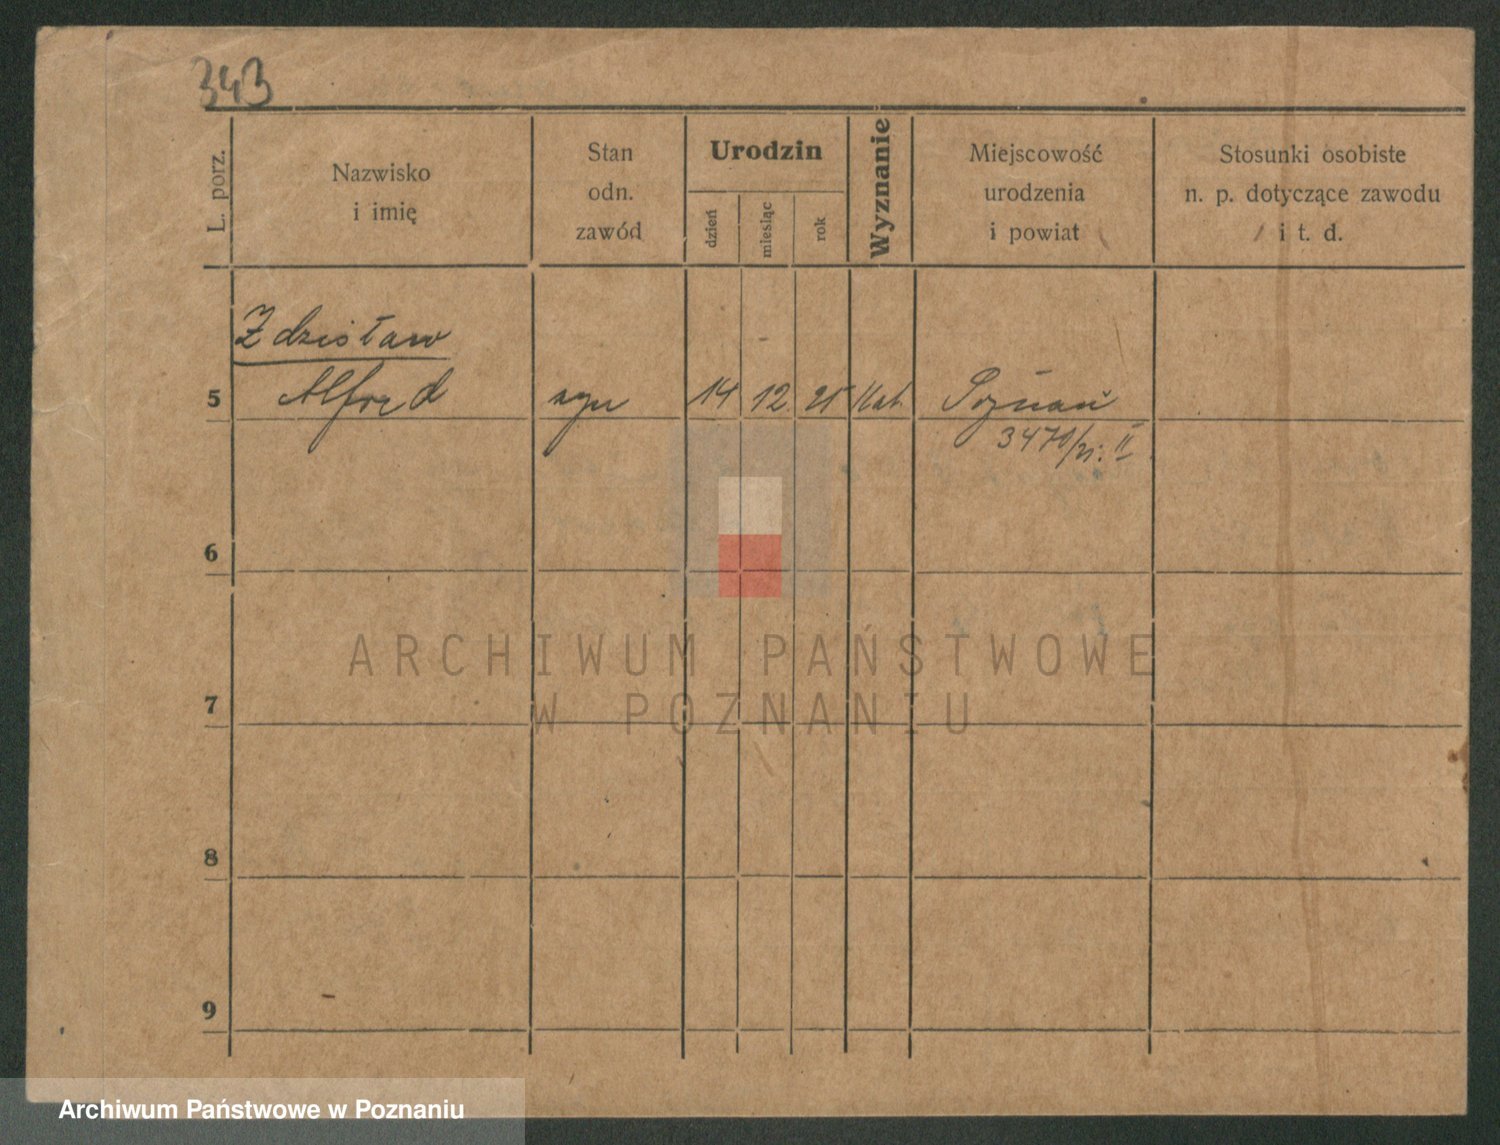 343
L. porz.
Nazwisko
i imię
Stan
odn.
zawód
Urodzin
dzień
miesiąc
rok
Wyznanie
Miejscowość
urodzenia
i powiat
Stosunki osobiste
n. p. dotyczące zawodu
i t. d.
Zdzisław
5 Alfred syn 14 12 21 Kat. Poznań
3470/21. II
6
7
8
9
ARCHIWUM PAŃSTWOWE
W POZNANIU
Archiwum Państwowe w Poznaniu